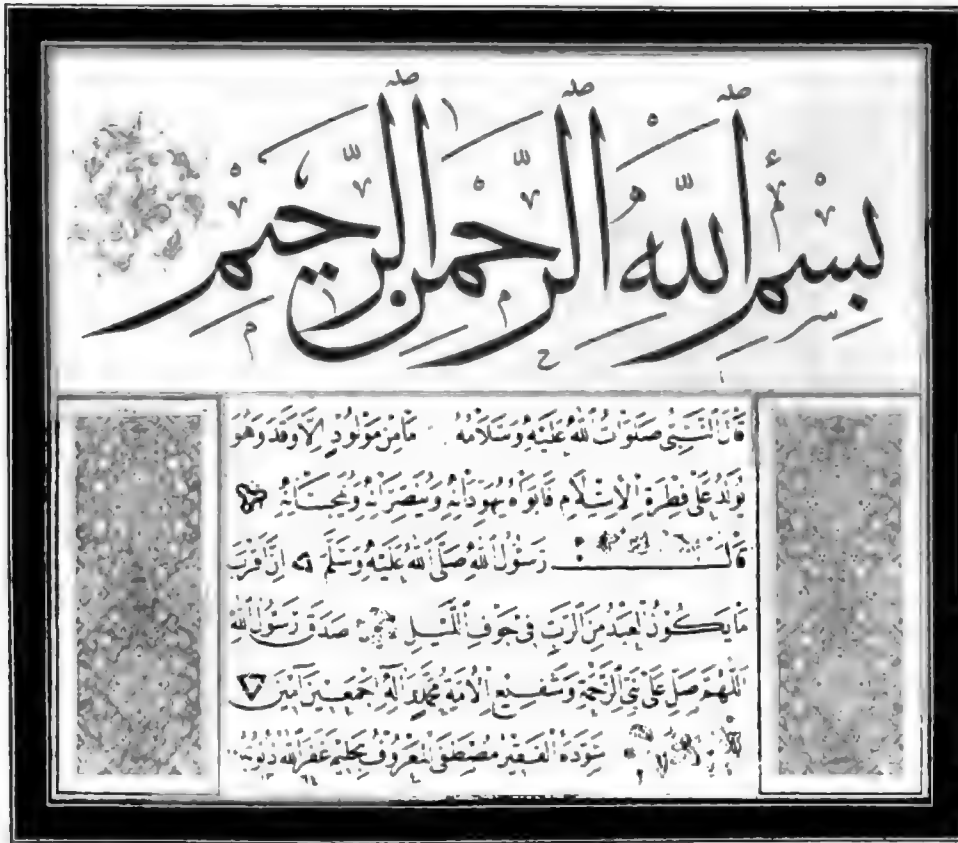 بسم الله الرحمن الرحيم
قال النبي صلوات الله عليه وسلامه ما من مولود الا وقد وهو
يولد على فطرة الاسلام فابواه يهودانه وينصرانه ويمجسانه
قال رسول الله صلى الله عليه وسلم ان اقرب
ما يكون العبد من الرب في جوف الليل صدق رسول الله
اللهم صل على نبي الرحمة وشفيع الامة محمد واله اجمعين امين
سوده الفقير مصطفى المعروف بحليم غفر الله ذنوبه